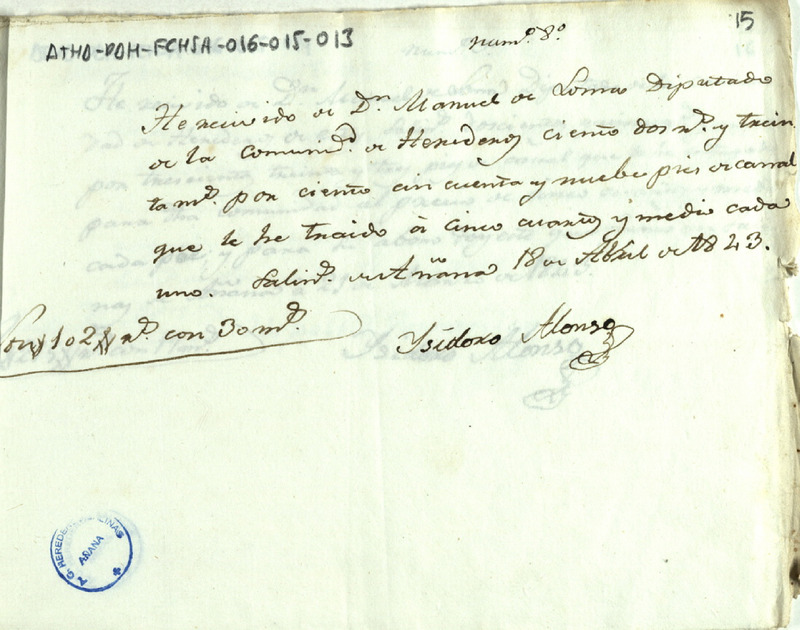 15
ATHA-DAH-FCHSA-016-015-013
num.º 8.º
He recivido de D.n Manuel de Loma Diputado
de la Comunid.d de Herederos ciento dos r.s y trein
ta m.s por ciento cin cuenta y nuebe pies de canal
que le he traido á cinco cuartos y medio cada
uno. Salin.s de Añana 18 de Abril de 1843.
Son 102 r.s con 30 m.s
Isidoro Alonso
AÑANA